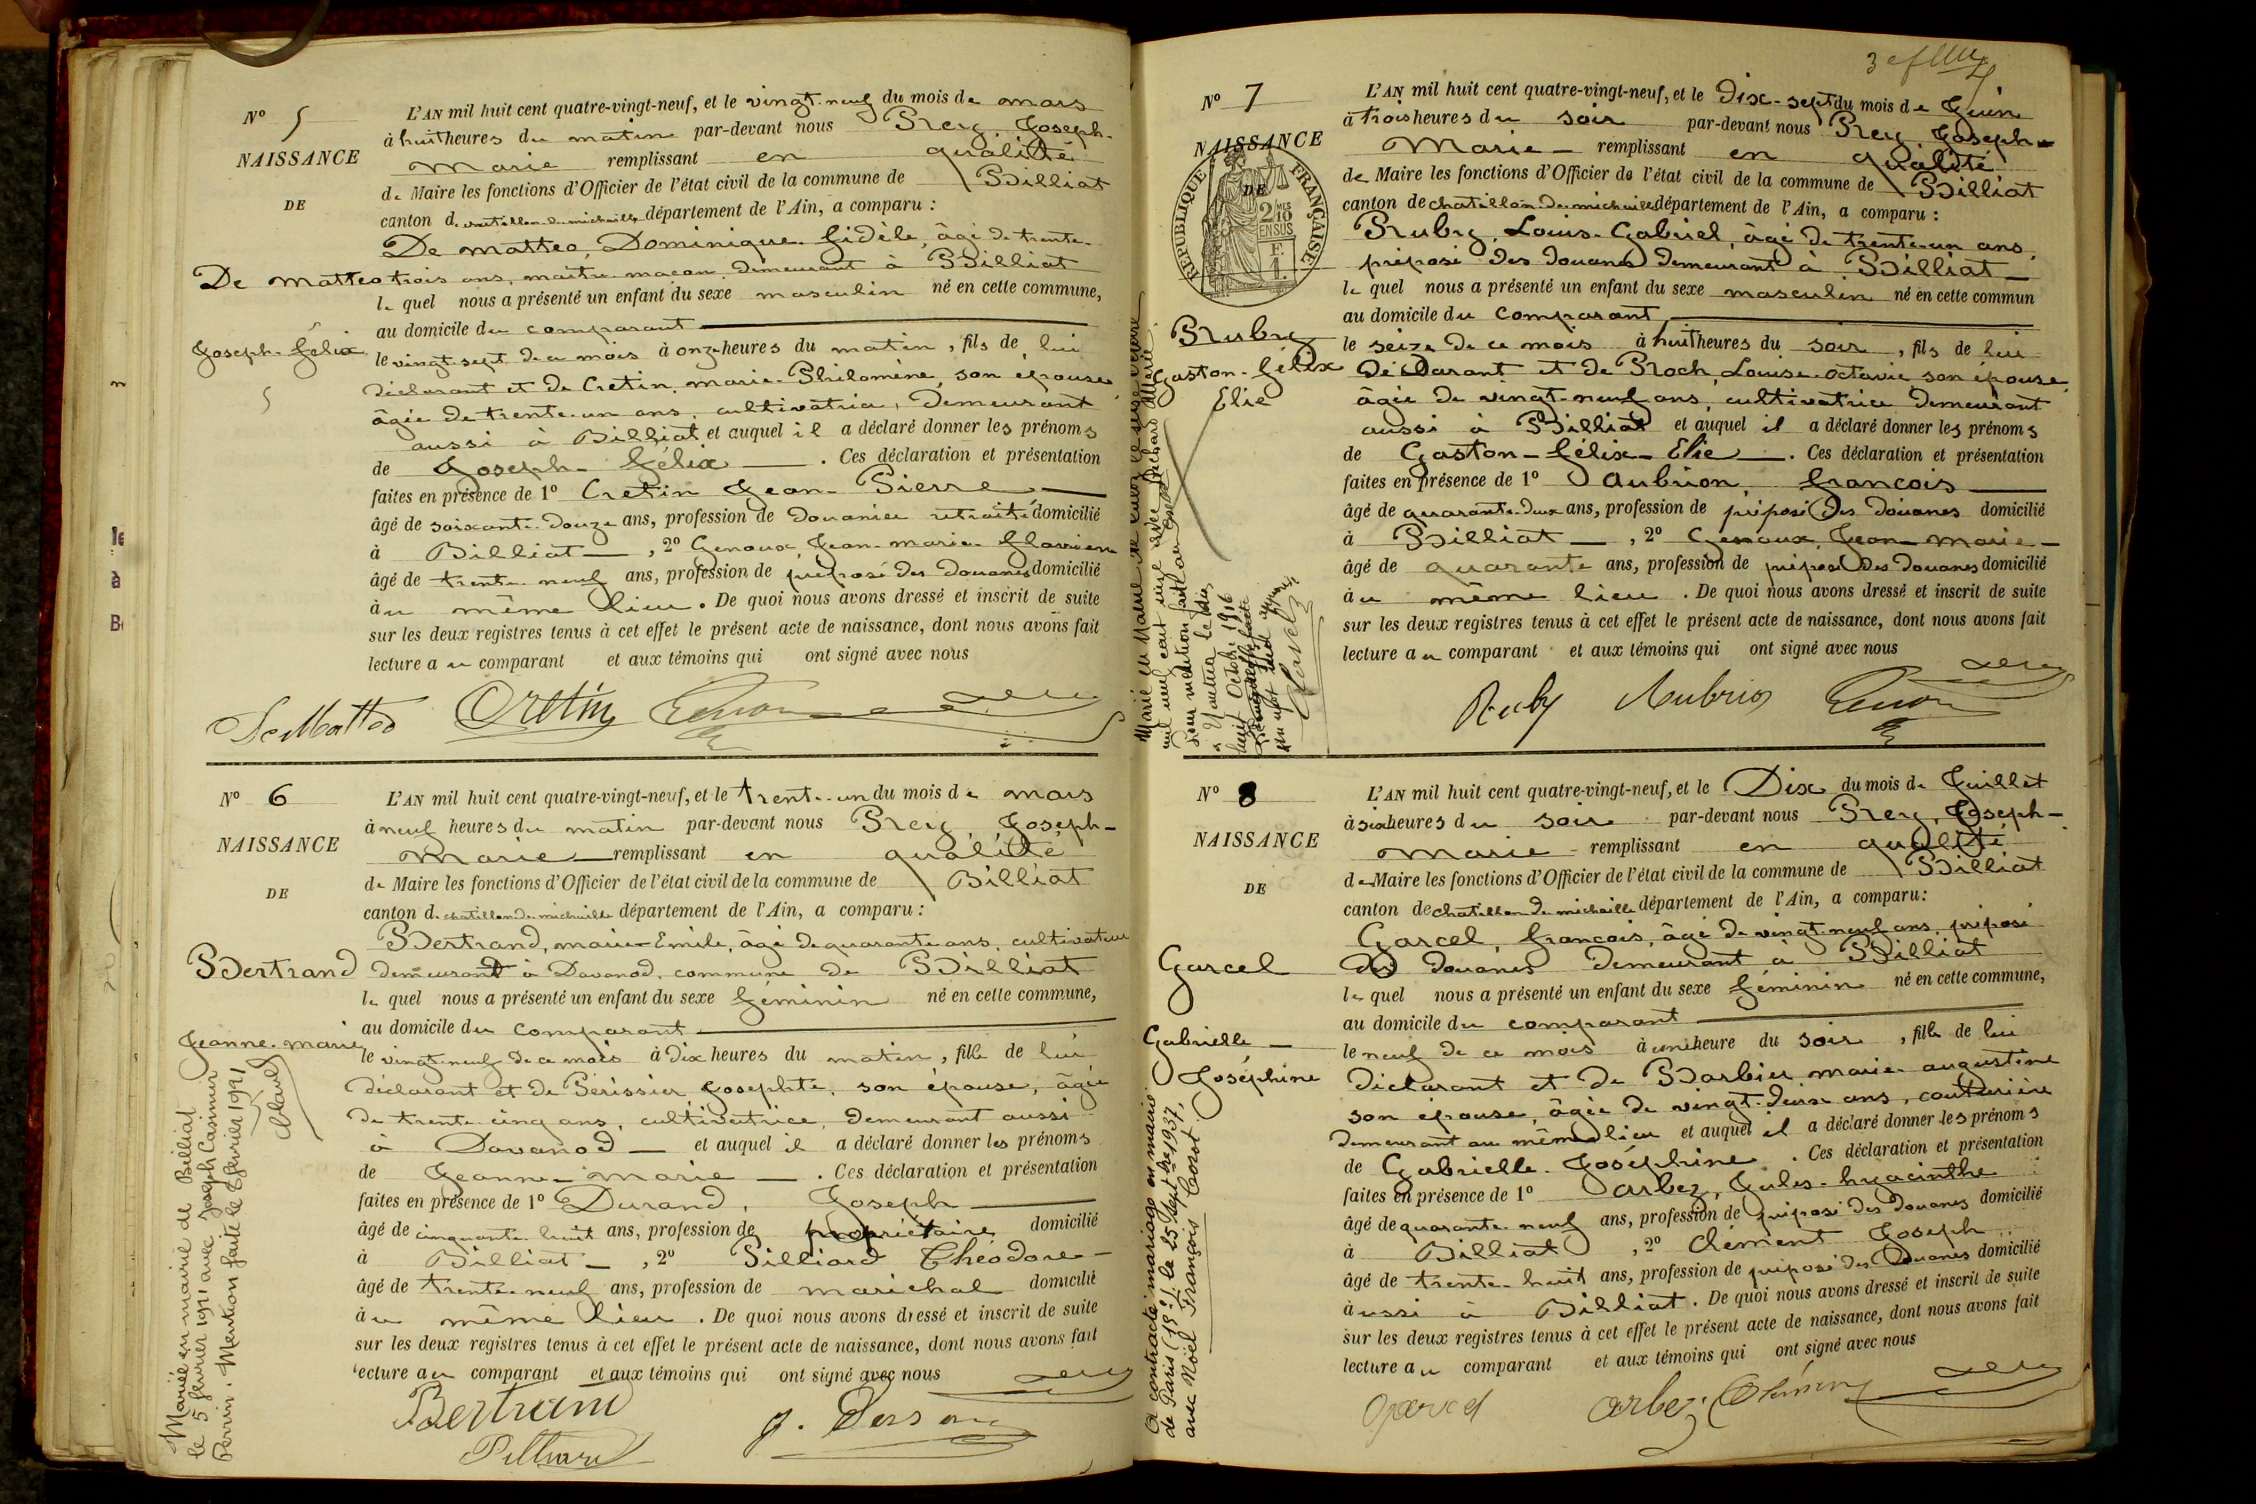 Nº 5
NAISSANCE
DE
De Matteo
Joseph-Félix
5
L'AN mil huit cent quatre-vingt-neuf, et le vingt-neuf du mois de mars
à huit heures du matin par-devant nous Prey, Joseph-
Marie remplissant en qualité
de Maire les fonctions d'Officier de l'état civil de la commune de Billiat
canton de chatillon-de-michaille département de l'Ain, a comparu :
De Matteo, Dominique-Fidèle, âgé de trente-
trois ans, maitre maçon, demeurant à Billiat
lequel nous a présenté un enfant du sexe masculin né en cette commune,
au domicile du comparant
le vingt-sept de ce mois à onze heures du matin, fils de lui
déclarant et de Cretin, marie-Philomène, son épouse
âgée de trente-un ans, cultivatrice, demeurant
aussi à Billiat et auquel il a déclaré donner les prénoms
de Joseph-Félix. Ces déclaration et présentation
faites en présence de 1º Cretin Jean-Pierre
âgé de soixante-douze ans, profession de douanier retraité domicilié
à Billiat, 2º Genoux, Jean-marie-
âgé de trente-neuf ans, profession de préposé des Douanes domicilié
au même lieu. De quoi nous avons dressé et inscrit de suite
sur les deux registres tenus à cet effet le présent acte de naissance, dont nous avons fait
lecture au comparant et aux témoins qui ont signé avec nous
DeMatteo Cretin Genoux
Nº 6
NAISSANCE
DE
Bertrand
Jeanne-marie
Mariée en mairie de Billiat
le 5 février 1921 avec Joseph Casimir
Perrin. Mention faite le 8 février 1921
L'AN mil huit cent quatre-vingt-neuf, et le trente-un du mois de mars
à neuf heures du matin par-devant nous Prey, Joseph-
Marie remplissant en qualité
de Maire les fonctions d'Officier de l'état civil de la commune de Billiat
canton de chatillon de michaille département de l'Ain, a comparu :
Bertrand, marie-Emile, âgé de quarante ans, cultivateur
demeurant à Davanod, commune de Billiat
lequel nous a présenté un enfant du sexe féminin né en cette commune,
au domicile du comparant
le vingt-neuf de ce mois à dix heures du matin, fille de lui
déclarant et de Périssier, Josephte, son épouse, âgée
de trente cinq ans, cultivatrice, demeurant aussi
à Davanod et auquel il a déclaré donner les prénoms
de Jeanne-marie. Ces déclaration et présentation
faites en présence de 1º Durand, Joseph
âgé de cinquante-huit ans, profession de propriétaire domicilié
à Billiat, 2º Pilliard Théodore
âgé de trente-neuf ans, profession de maréchal domicilié
au même lieu. De quoi nous avons dressé et inscrit de suite
sur les deux registres tenus à cet effet le présent acte de naissance, dont nous avons fait
lecture au comparant et aux témoins qui ont signé avec nous
Bertrand
Pilliard
Nº 7
NAISSANCE
DE
RÉPUBLIQUE FRANÇAISE
2/10 MES
EN SUS
F.
1.
Ruby
Gaston-Félix
Elie
L'AN mil huit cent quatre-vingt-neuf, et le Dix-sept du mois de Juin
à trois heures du soir par-devant nous Prey, Joseph-
Marie remplissant en qualité
de Maire les fonctions d'Officier de l'état civil de la commune de Billiat
canton de chatillon-de-michaille département de l'Ain, a comparu :
Ruby, Louis-Gabriel, âgé de trente-un ans,
préposé des Douanes demeurant à Billiat
lequel nous a présenté un enfant du sexe masculin né en cette commun
au domicile du comparant
le seize de ce mois à huit heures du soir, fils de lui
déclarant et de Roch, Louise-Octavie son épouse
âgée de vingt-neuf ans, cultivatrice demeurant
aussi à Billiat et auquel il a déclaré donner les prénoms
de Gaston-Félix-Elie. Ces déclaration et présentation
faites en présence de 1º Aubrion, françois
âgé de quarante-deux ans, profession de préposé des Douanes domicilié
à Billiat, 2º Genoux, Jean-marie-
âgé de quarante ans, profession de préposé des Douanes domicilié
au même lieu. De quoi nous avons dressé et inscrit de suite
sur les deux registres tenus à cet effet le présent acte de naissance, dont nous avons fait
lecture au comparant et aux témoins qui ont signé avec nous
Ruby Aubrion Genoux
Nº 8
NAISSANCE
DE
Garcel
Gabrielle-
Joséphine
A contracté mariage en mairie
de Paris (18e) le 25 Sept bre 1937,
avec Noël François Corot
L'AN mil huit cent quatre-vingt-neuf, et le Dix du mois de Juillet
à six heures du soir par-devant nous Prey, Joseph-
Marie remplissant en qualité
de Maire les fonctions d'Officier de l'état civil de la commune de Billiat
canton de chatillon de michaille département de l'Ain, a comparu :
Garcel, françois, âgé de vingt-neuf ans, préposé
des Douanes demeurant à Billiat
lequel nous a présenté un enfant du sexe féminin né en cette commune,
au domicile du comparant
le neuf de ce mois à une heure du soir, fille de lui
déclarant et de Barbier, marie-augustine
son épouse, âgée de vingt-deux ans, couturière
demeurant au même lieu et auquel il a déclaré donner les prénoms
de Gabrielle-Joséphine. Ces déclaration et présentation
faites en présence de 1º Arbez, Jules-hyacinthe
âgé de quarante-neuf ans, profession de préposé des Douanes domicilié
à Billiat, 2º Clément Joseph
âgé de trente-huit ans, profession de préposé des Douanes domicilié
aussi à Billiat. De quoi nous avons dressé et inscrit de suite
sur les deux registres tenus à cet effet le présent acte de naissance, dont nous avons fait
lecture au comparant et aux témoins qui ont signé avec nous
Garcel Arbez Clément